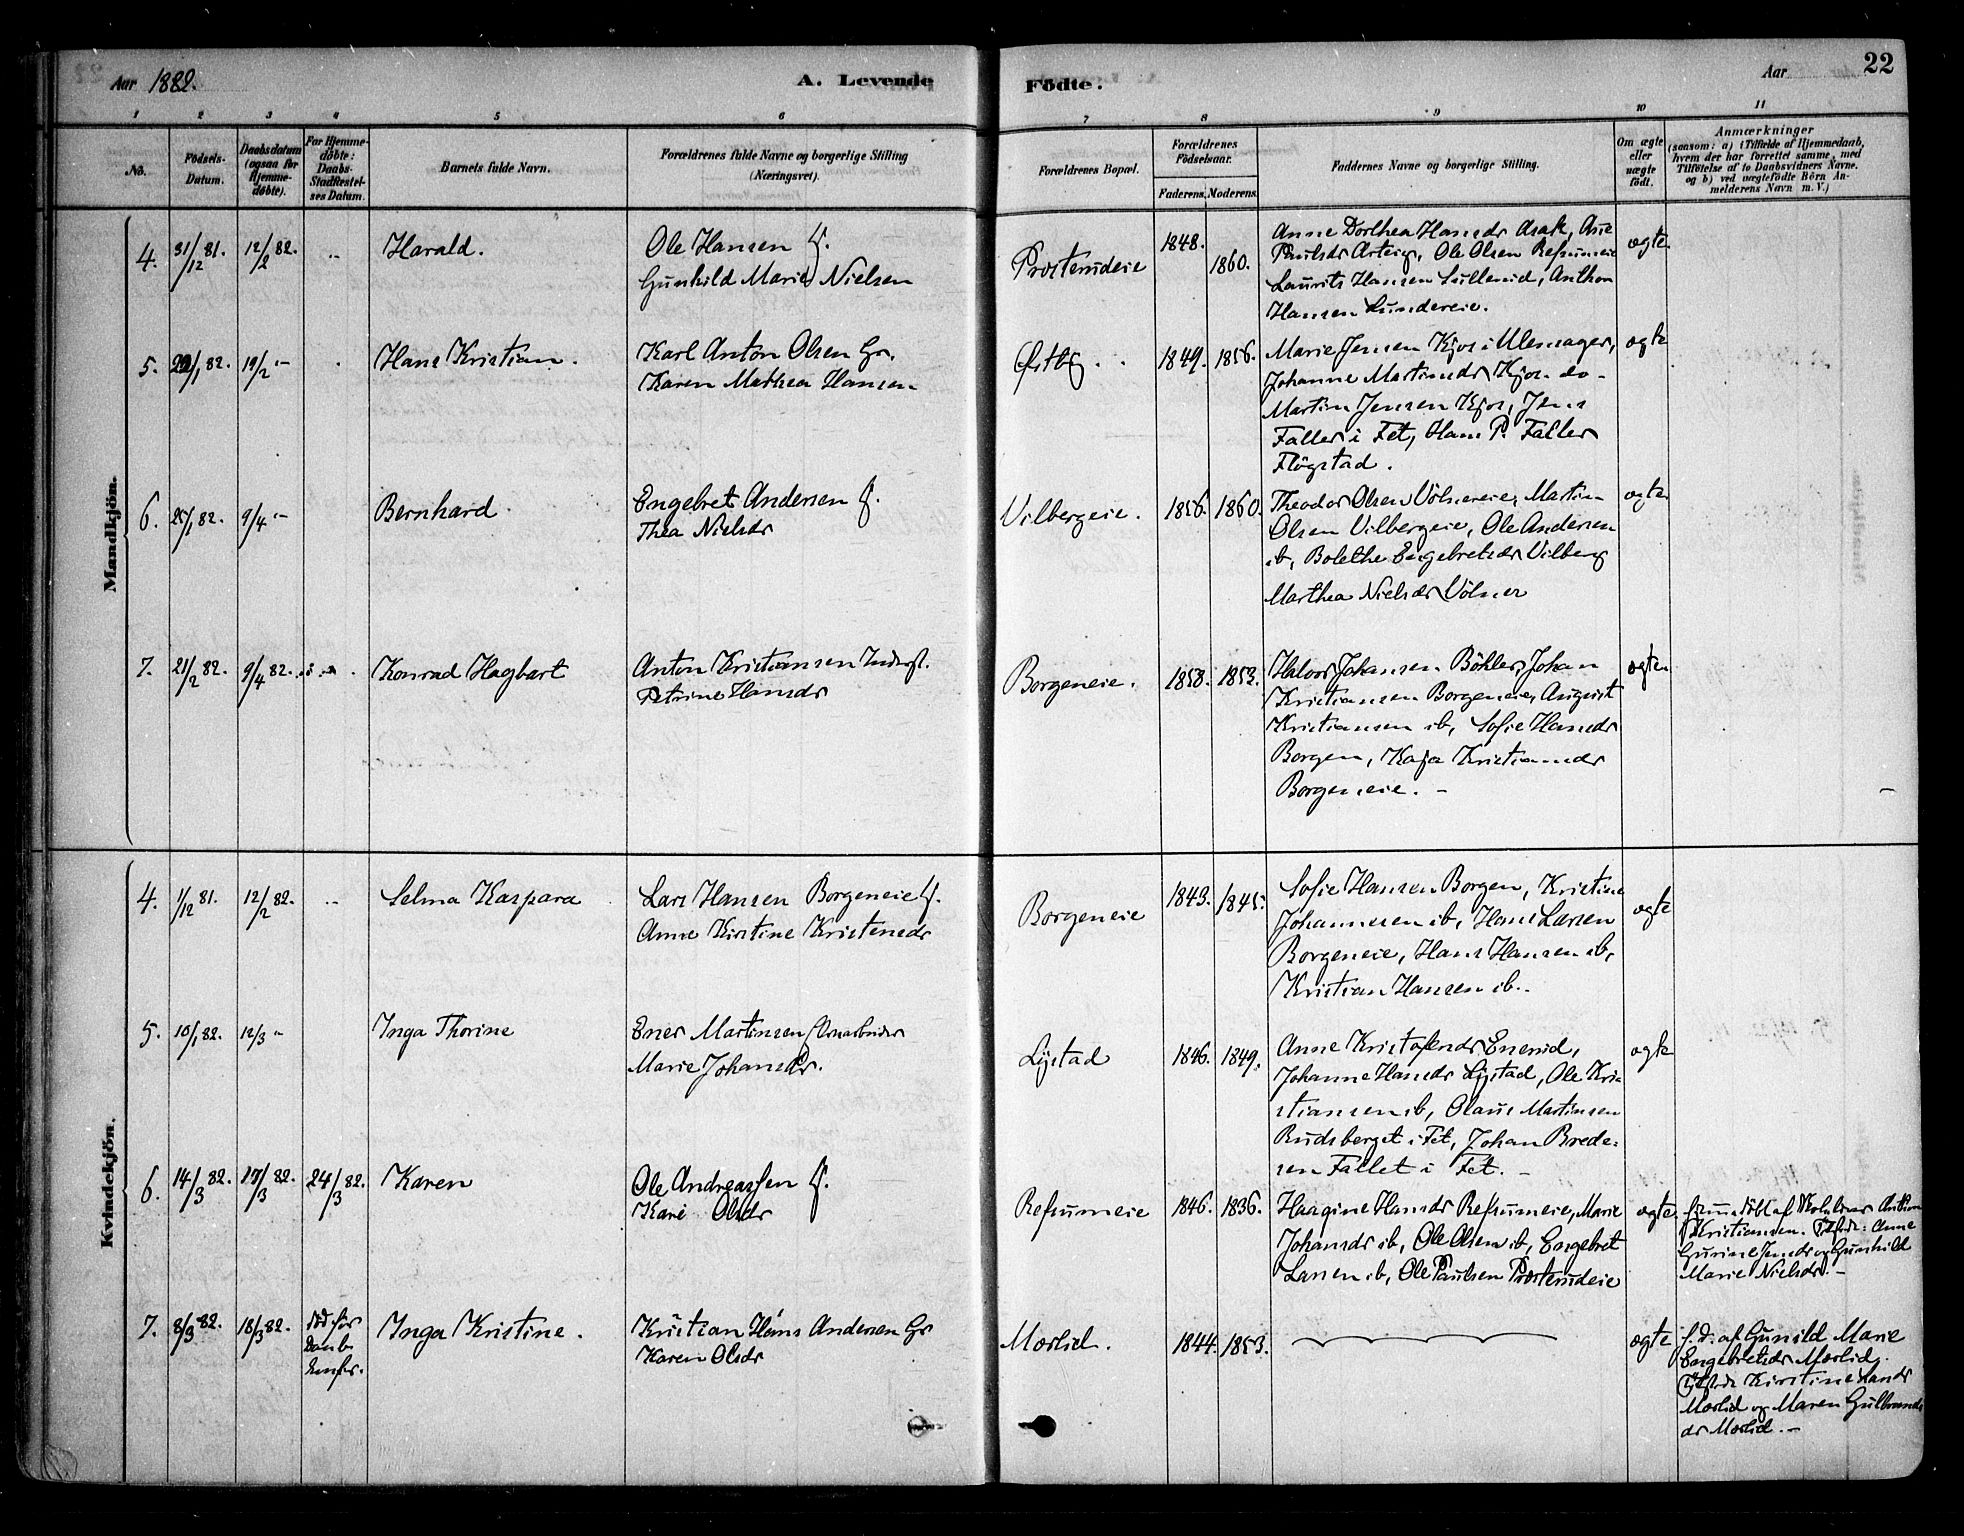 Aar 1882.
A. Levende
Födte.
Aar
22
1 2 3 4 5 6 7 8 9 10 11
No.
Födsels-
Datum.
Daabsdatum
(ogsaa for
Hjemme-
døbte).
For Hjemme-
døbte:
Daabs-
Stadfæstel-
ses Datum.
Barnets fulde Navn.
Forældrenes fulde Navne og borgerlige Stilling
(Næringsvei).
Forældrenes Bopæl.
Forældrenes
Födselsaar.
Faderens. Moderens.
Faddernes Navne og borgerlige Stilling.
Om ægte
eller
uægte
födt.
Anmærkninger
(saasom: a) i Tilfælde af Hjemmedaab,
hvem der har forrettet samme, med
Tilföielse af to Daabsvidners Navne.
og b) ved uægtefödte Börn An-
melderens Navn m. V.)
Mandkjön.
4. 31/12 81. 12/2 82. Harald.
Ole Hansen f.
Gunhild Marie Nielsen
Prosterudeie
1848.
1860.
Anne Dorthea Hansdr Asak, Ane
Paulsdr Asteig, Ole Olsen Refsumeie
Laurits Hansen Lullerud, Anthon
Hansen Lundereie.
ægte
5. 22/1 82. 19/2 -"- Hans Kristian.
Karl Anton Olsen Gr.
Karen Mathea Hansen
Østby.
1849. 1856.
Marie Jensen Kjos i Ulensager,
Johanne Martinsdr Kjos do-
Martin Jensen Kjos, Jens
Faller i Fet, Hans P. Faller
Flögstad.
ægte
6. 25/1 82. 9/4 -"- Bernhard.
Engebret Andersen f.
Thea Nielsdr
Vilbergeie.
1856. 1860.
Theodor Olsen Völnereie, Martin
Olsen Vilbergeie, Ole Andersen
ib, Bolethe Engebretsdr Vilberg
Marthea Nielsdr Völner
ægte
7. 21/2 82. 9/4 82. Konrad Hagbart
Anton Kristiansen Inderst.
Petrine Hansdr
Borgeneie.
1858. 1853.
Halvor Johansen Böhler, Johan
Kristiansen Borgeneie, August
Kristiansen ib, Sofie Hansdr
Borgen, Kaja Kristiansdr
Borgeneie. -
ægte
Kvindekjön.
4. 1/12 81. 12/2 82. Selma Kaspara
Lars Hansen Borgeneie f.
Anne Kirstine Kristensdr
Borgeneie
1843. 1845.
Sofie Hansen Borgen, Kristine
Johannesen ib, Hans Larsen
Borgeneie, Hans Hansen ib,
Kristian Hansen ib.
ægte
5. 10/1 82. 12/3 -"- Inga Thorine
Ener Martinsen
Marie Johansdr.
Lystad
1846. 1849.
Anne Kristofensdr Enerud,
Johanne Hansdr Lystad, Ole Kri-
stiansen ib, Olaus Martinsen
Rudsberget i Fet, Johan Brede-
sen Fallet i Fet. -
ægte
6. 14/3 82. 17/3 82. 24/3 82. Karen
Ole Andreassen f.
Kari Olsdr
Refsumeie
1846. 1836.
Haagine Hansdr Refsumeie, Marie
Johansdr ib, Ole Olsen ib, Engebret
Larsen ib, Ole Paulsen Prosterudeie
ægte.
hjemmedöbt af Skolelærer Anton
Kristiansen. Tilstede: Anne
Gurine Jensdr og Gunhild
Marie Nielsdr. -
7. 8/3 82. 18/3 82. död før
Daabs
Inga Kristine.
Kristian Hans Andersen Gr
Karen Olsdr
Mærlid.
1844. 1853.
ægte
h. d. af Gunild Marie
Engebretsdr Mærlid.
Tilstede Kirstine Larsdr
Mærlid og Maren Gulbrands
dr Mærlid. -